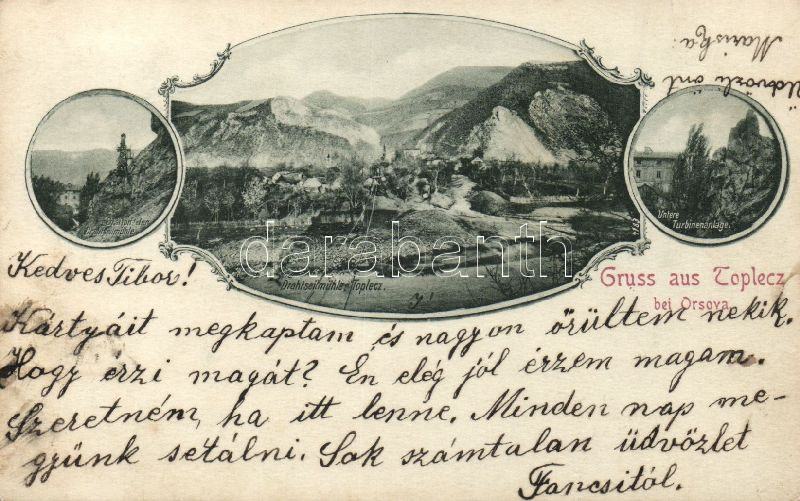 Mariska.
Üdvözli önt
Untere
Turbinenanlage.
Drahtseilmühle Toplecz.
darabanth
Gruss aus Toplecz
bei Orsova.
Kedves Tibor!
Kártyáit megkaptam és nagyon örültem nekik.
Hogy érzi magát? Én elég jól érzem magam.
Szeretném, ha itt lenne. Minden nap me-
gyünk sétálni. Sok számtalan üdvözlet
Fancsitól.